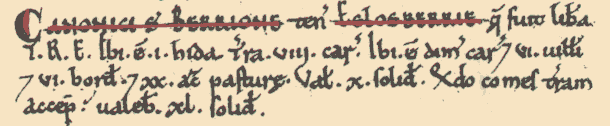 CANONICI S̃ BERRIONE teñ EGLOSBERRIE. q̃ fuit lib̃a
T.R.E. Ibi .ẽ .i. hida. T̃ra .viii. car̃. Ibi .ẽ dim̃ car̃ ⁊ vi. uill̃i
⁊ vi. bord̃. ⁊ xx. ac̃ pasturę. Val̃ .x. solid̃. Q̃do comes t̃ram
accep̃: ualeb̃ .xl. solid̃.